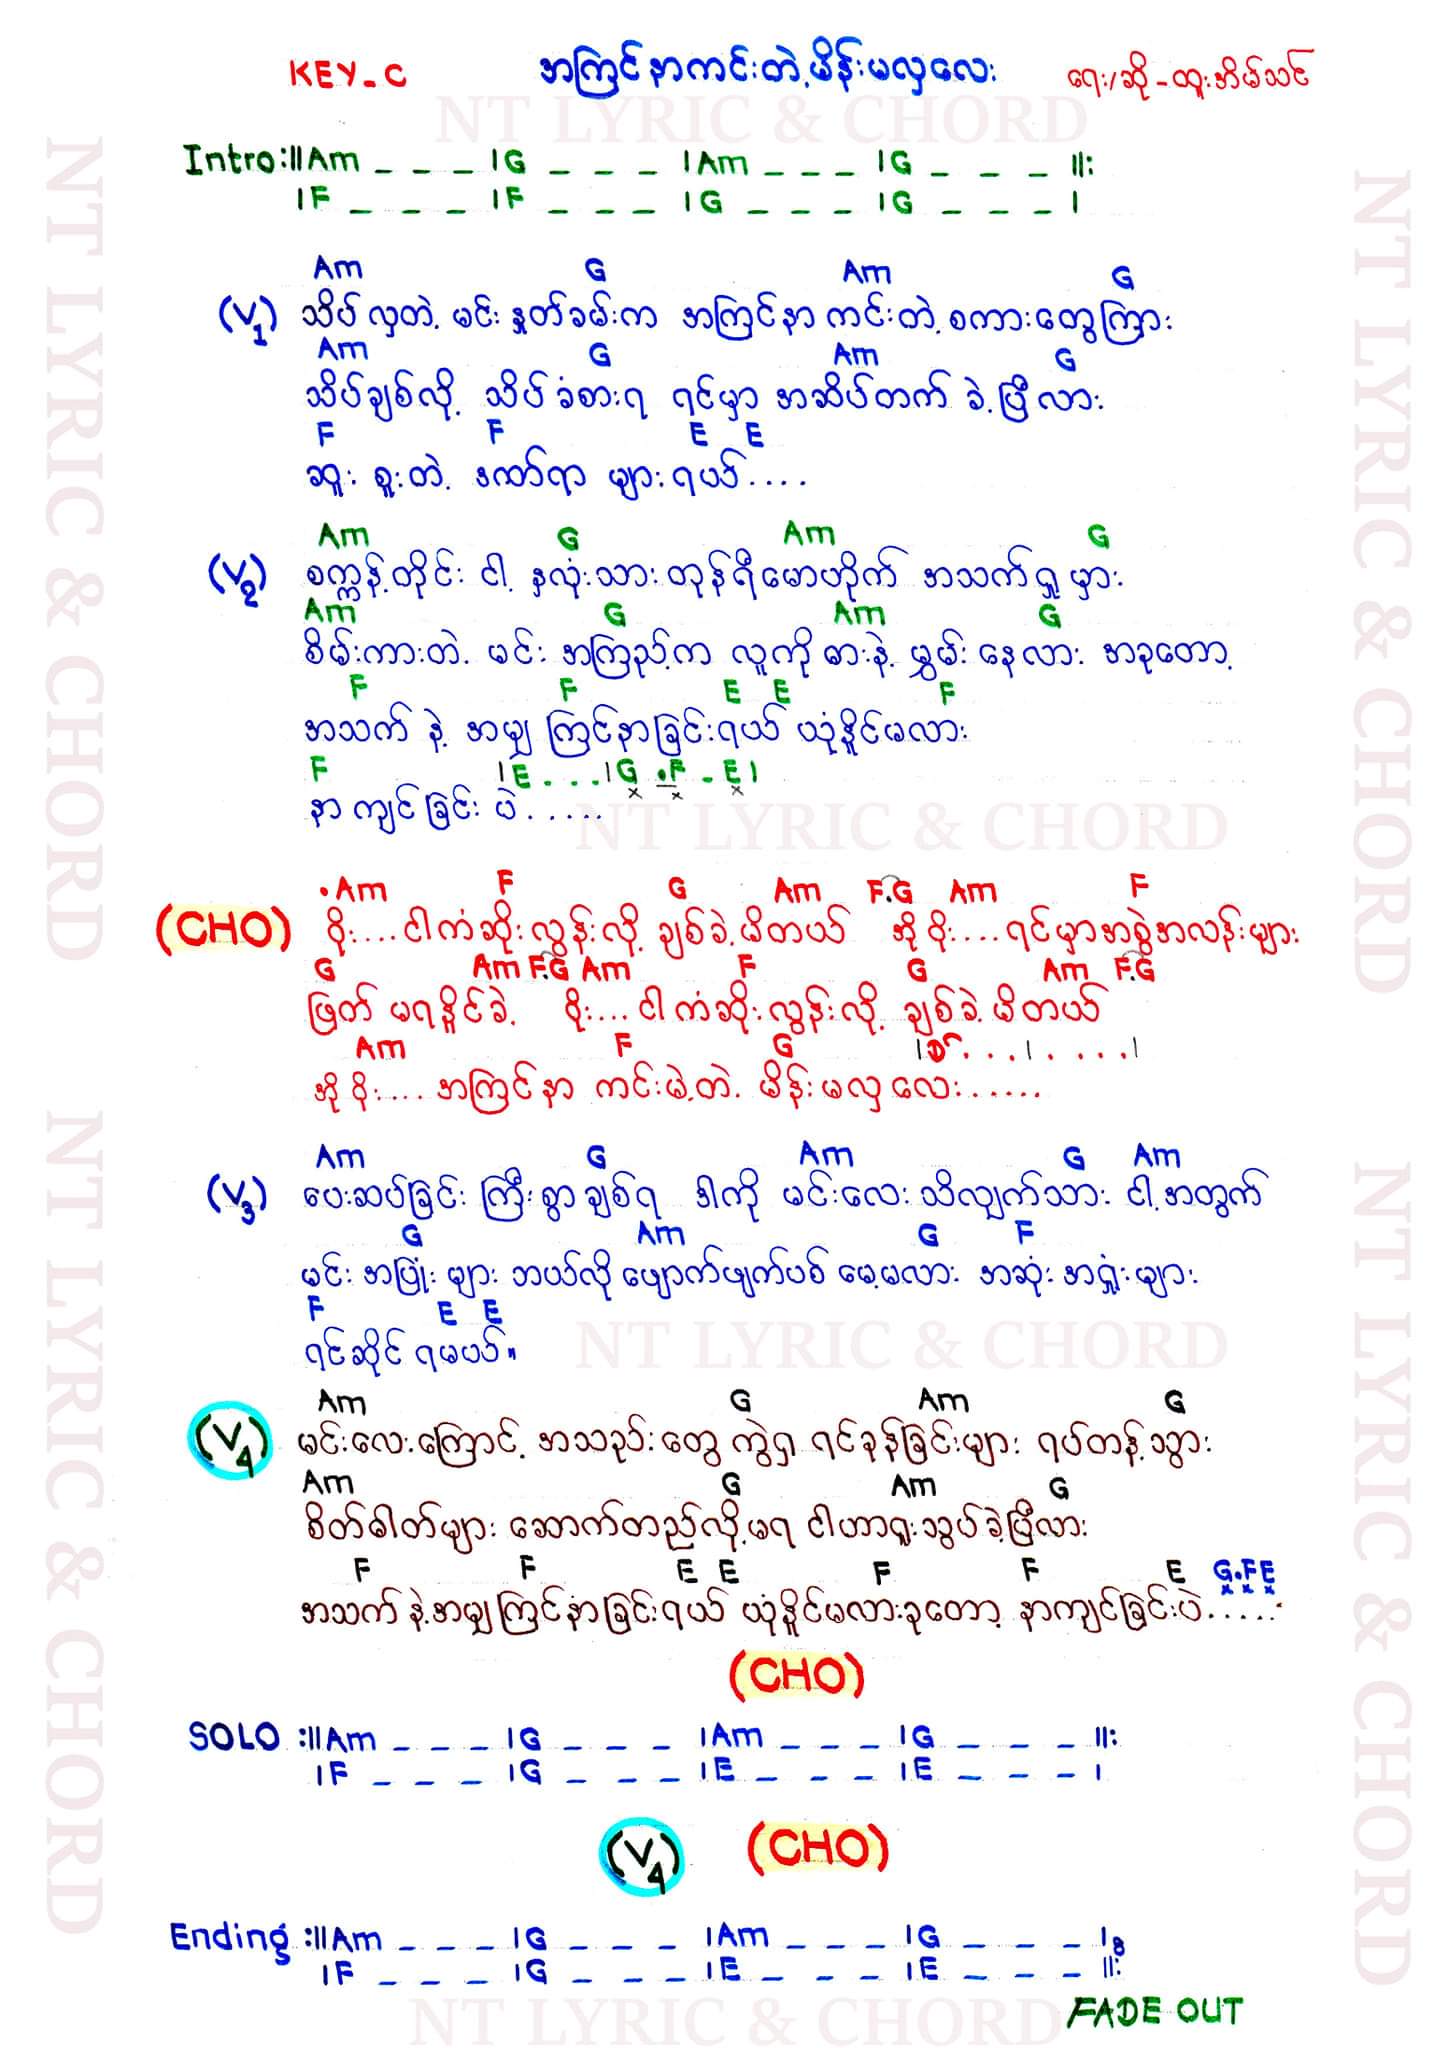 KEY_C အကြင်နာကင်းတဲ့မိန်းမလှလေး ရေး/ဆို-ထူးအိမ်သင်
NT LYRIC & CHORD
Intro :||Am _ _ _ |G _ _ _ |Am _ _ _ |G _ _ _ ||:
|F _ _ _ |F _ _ _ |G _ _ _ |G _ _ _ |
Am G Am G
(V1) သိပ်လှတဲ့ မင်းနှုတ်ခမ်းက အကြင်နာကင်းတဲ့ စကားတွေကြား
Am G Am G
သိပ်ချစ်လို့ သိပ်ခံစားရ ရင်မှာ အဆိပ်တက် ခဲ့ပြီလား
F F E E
ဆူး စူးတဲ့ ဒဏ်ရာ များရယ်....
Am G Am G
(V2) စက္ကန့်တိုင်း ငါ့ နှလုံးသား တုန်ရီမောဟိုက် အသက်ရှူမှား
Am G Am G
စိမ်းကားတဲ့ မင်း အကြည့်က လူကိုဓားနဲ့ မွှမ်းနေလား အခုတော့
F F E E F
အသက် နဲ့ အမျှ ကြင်နာခြင်းရယ် ယုံနိူင်မလား
F |E . . . |G .F - E |
နာကျင်ခြင်း ပဲ.....
NT LYRIC & CHORD
.Am F G Am F.G Am F
(CHO) ဗိုး....ငါကံဆိုးလွန်းလို့ ချစ်ခဲ့မိတယ် အိုဗိုး....ရင်မှာအစွဲအလန်းများ
G Am F.G Am F G Am F.G
ဖြတ် မရနိူင်ခဲ့ ဗိုး...ငါကံဆိုးလွန်းလို့ ချစ်ခဲ့မိတယ်
Am F G
အိုဗိုး.... အကြင်နာ ကင်းမဲ့တဲ့ မိန်းမလှလေး......
Am G Am G Am
(V3) ပေးဆပ်ခြင်း ကြီးစွာချစ်ရ ဒါကို မင်းလေး သိလျှက်သား ငါ့အတွက်
G Am G F
မင်း အပြုံးများ ဘယ်လိုပျောက်ဖျက်ပစ် မေ့မလား အဆုံး အရှုံးများ
F E E
ရင်ဆိုင် ရမယ်။
NT LYRIC & CHORD
Am G Am G
(V4) မင်းလေးကြောင့် အသည်းတွေ ကွဲရှ ရင်ခုန်ခြင်းများ ရပ်တန့်သွား
Am G Am G
စိတ်ဓါတ်များ ဆောက်တည်လို့မရ ငါဟာရူးသွပ်ခဲ့ပြီလား
F F E E F F E G.FE
အသက်နဲ့အမျှကြင်နာခြင်းရယ် ယုံနိူင်မလားခုတော့ နာကျင်ခြင်းပဲ......
(CHO)
SOLO :||Am _ _ _ |G _ _ _ |Am _ _ _ |G _ _ _ ||:
|F _ _ _ |G _ _ _ |E _ _ _ |E _ _ _ |
(V4) (CHO)
Ending :||Am _ _ _ |G _ _ _ |Am _ _ _ |G _ _ _ |
|F _ _ _ |G _ _ _ |E _ _ _ |E _ _ _ ||:
FADE OUT
NT LYRIC & CHORD
NT LYRIC & CHORD
NT LYRIC & CHORD
NT LYRIC & CHORD
NT LYRIC & CHORD